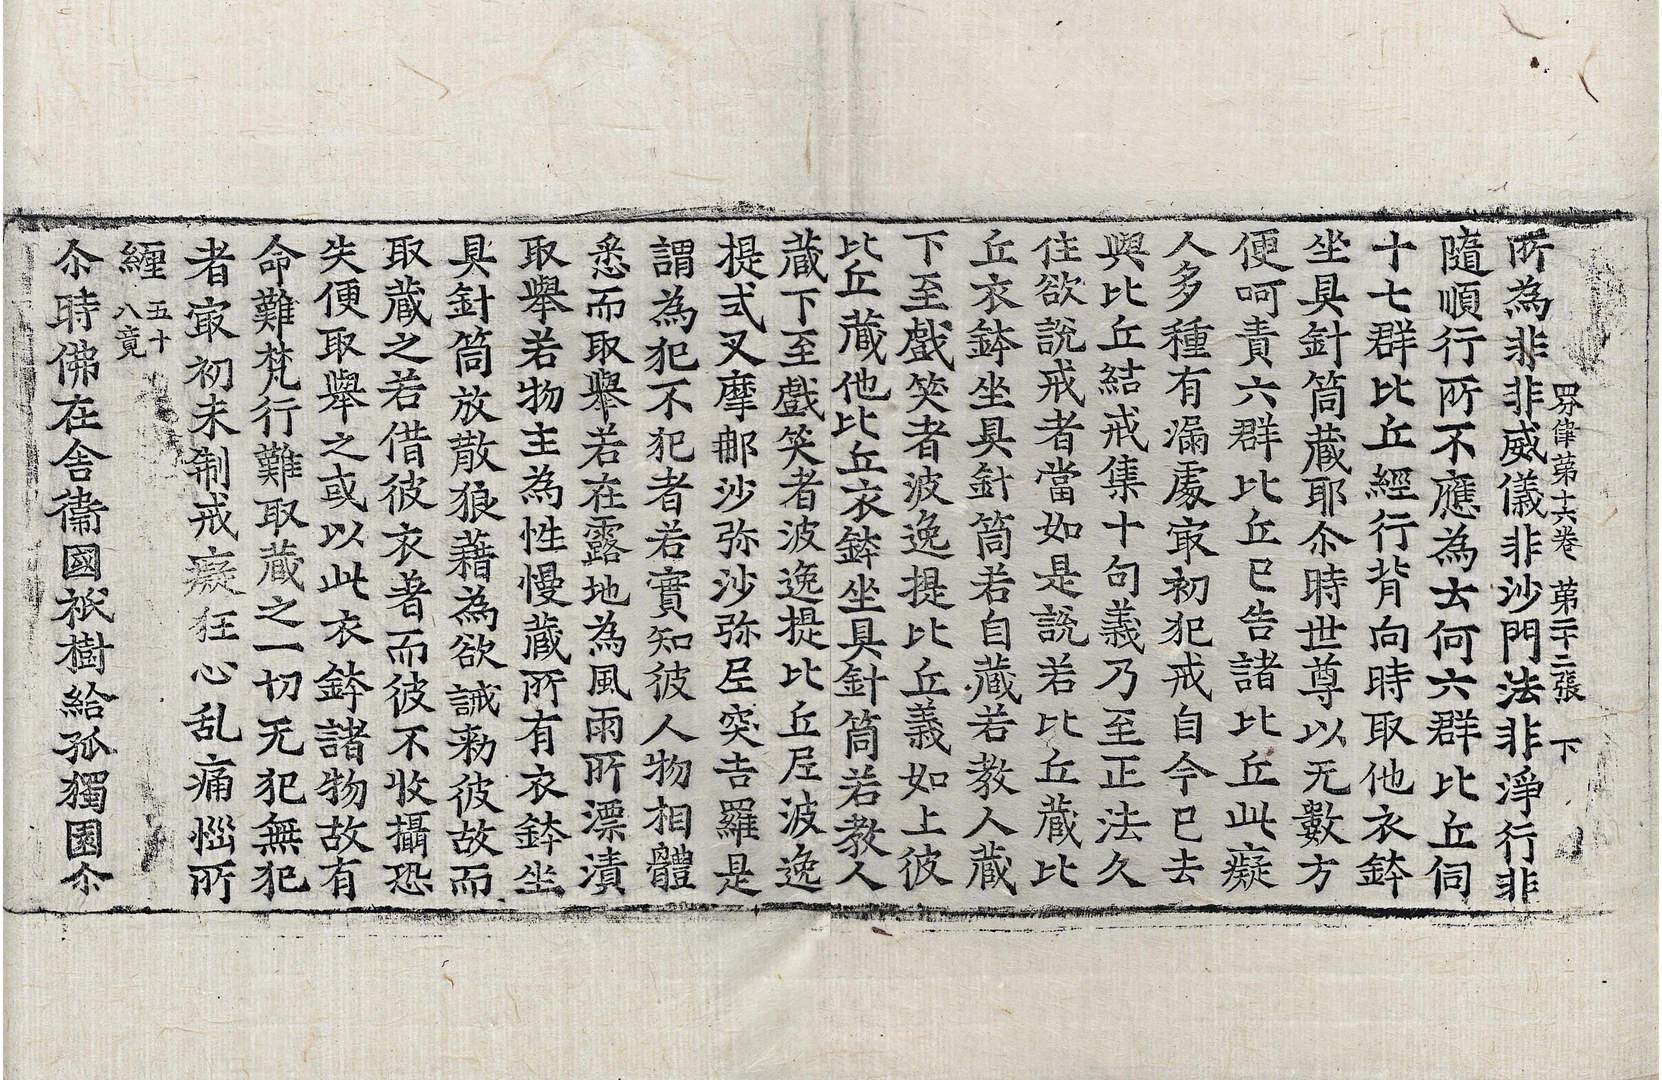 所為非非威儀非沙門法非淨行非
四分律第十六卷 第二十二張 下
隨順行所不應為云何六群比丘伺
十七群比丘經行背向時取他衣鉢
坐具針筒藏耶尒時世尊以无數方
便呵責六群比丘已告諸比丘此癡
人多種有漏處㝡初犯戒自今已去
與比丘結戒集十句義乃至正法久
住欲說戒者當如是說若比丘藏比
丘衣鉢坐具針筒若自藏若教人藏
下至戲笑者波逸提比丘義如上彼
比丘藏他比丘衣鉢坐具針筒若教人
藏下至戲笑者波逸提比丘尼波逸
提式叉摩那沙弥沙弥尼突吉羅是
謂為犯不犯者若實知彼人物相體
悉而取舉若在露地為風雨所漂漬
取舉若物主為性慢藏所有衣鉢坐
具針筒放散狼藉為欲誡勑彼故而
取藏之若借彼衣著而彼不收攝恐
失便取舉之或以此衣鉢諸物故有
命難梵行難取藏之一切无犯無犯
者㝡初未制戒癡狂心乱痛惱所
纏 五十八竟
尒時佛在舍衛國祇樹給孤獨園尒